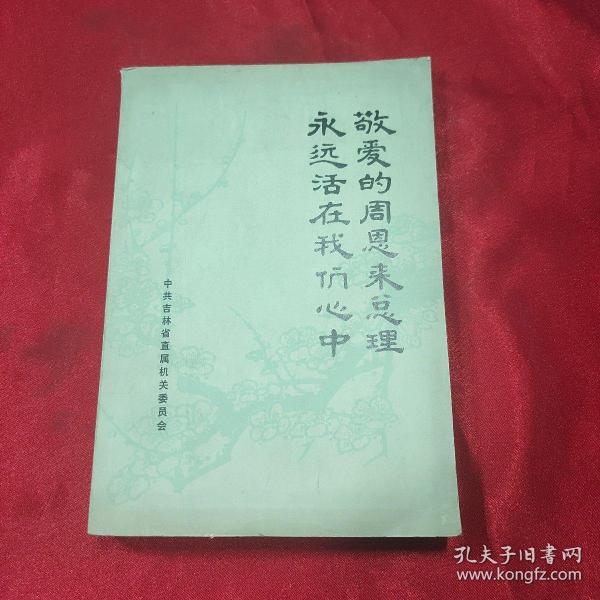 敬爱的周恩来总理
永远活在我们心中
中共吉林省直属机关委员会
孔夫子旧书网
www.kongfz.com